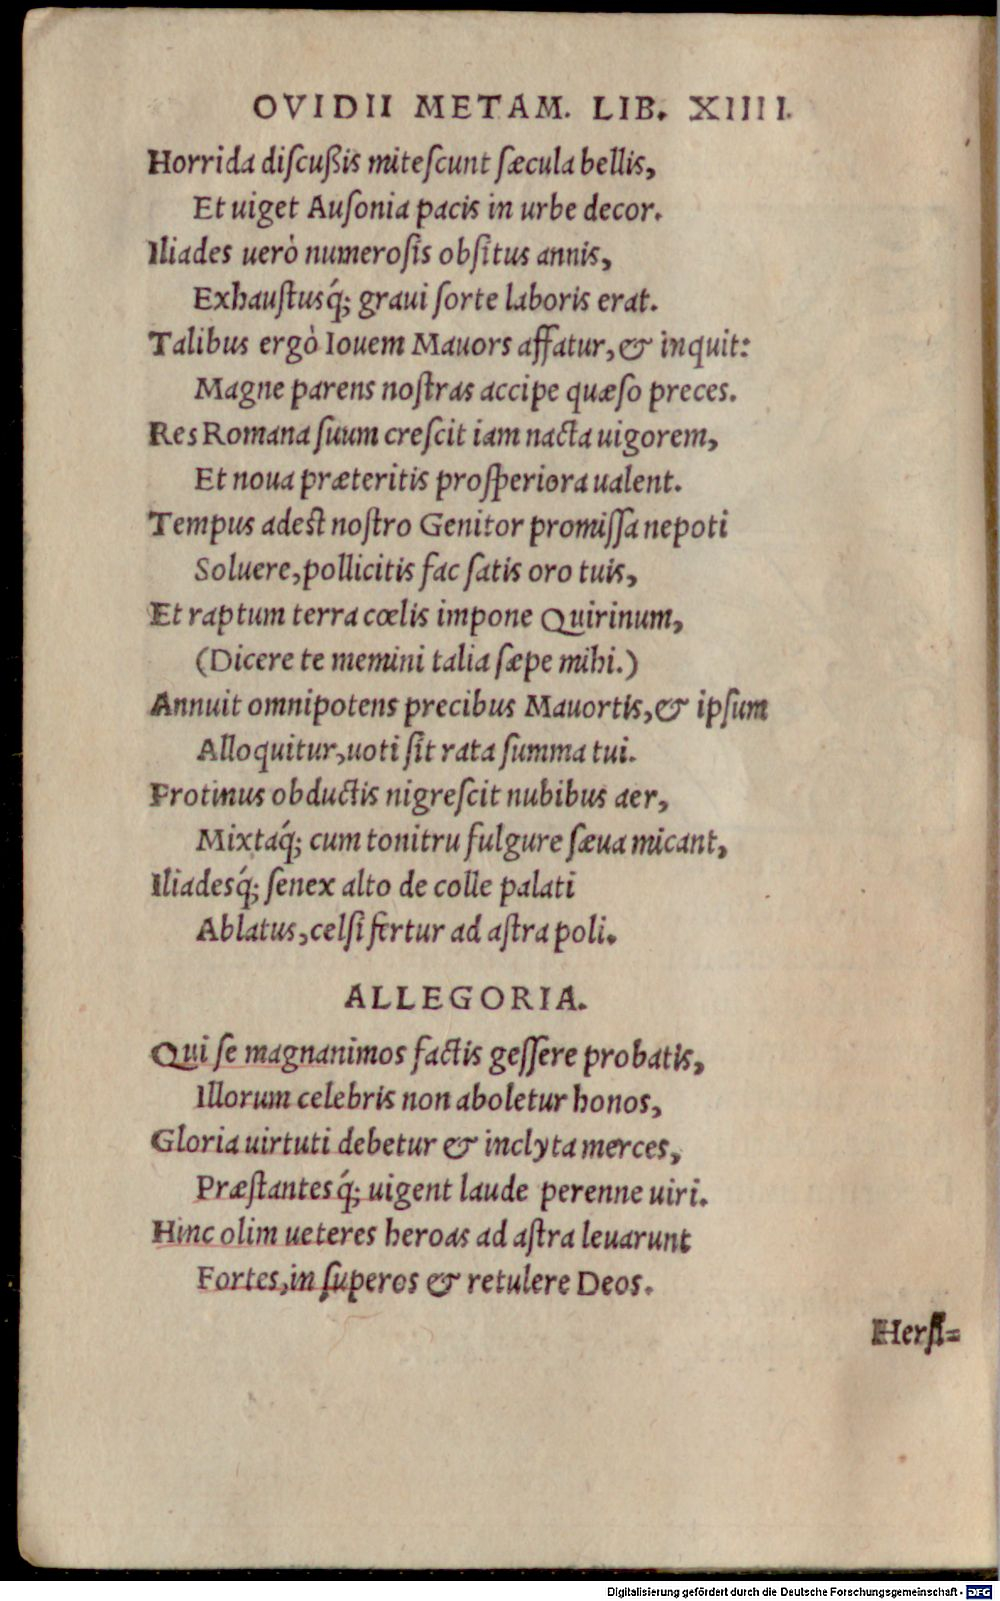 OVIDII METAM. LIB. XIIII.
Horrida diſcußis miteſcunt ſæcula bellis,
Et uiget Auſonia pacis in urbe decor.
Iliades uerò numeroſis obſitus annis,
Exhauſtusq́; graui ſorte laboris erat.
Talibus ergò Iouem Mauors affatur, & inquit:
Magne parens noſtras accipe quæſo preces.
Res Romana ſuum creſcit iam nacta uigorem,
Et noua præteritis proſperiora ualent.
Tempus adest noſtro Genitor promiſſa nepoti
Soluere, pollicitis fac ſatis oro tuis,
Et raptum terra cœlis impone Quirinum,
(Dicere te memini talia ſæpe mihi.)
Annuit omnipotens precibus Mauortis, & ipſum
Alloquitur, uoti ſit rata ſumma tui.
Protinus obductis nigreſcit nubibus aer,
Mixtaq́; cum tonitru fulgure ſæua micant,
Iliadesq́; ſenex alto de colle palati
Ablatus, celſi fertur ad aſtra poli.
ALLEGORIA.
Qui ſe magnanimos factis geſſere probatis,
Illorum celebris non aboletur honos,
Gloria uirtuti debetur & inclyta merces,
Præſtantesq́; uigent laude perenne uiri.
Hinc olim ueteres heroas ad aſtra leuarunt
Fortes, in ſuperos & retulere Deos.
Herſi=
Digitalisierung gefördert durch die Deutsche Forschungsgemeinschaft - DFG